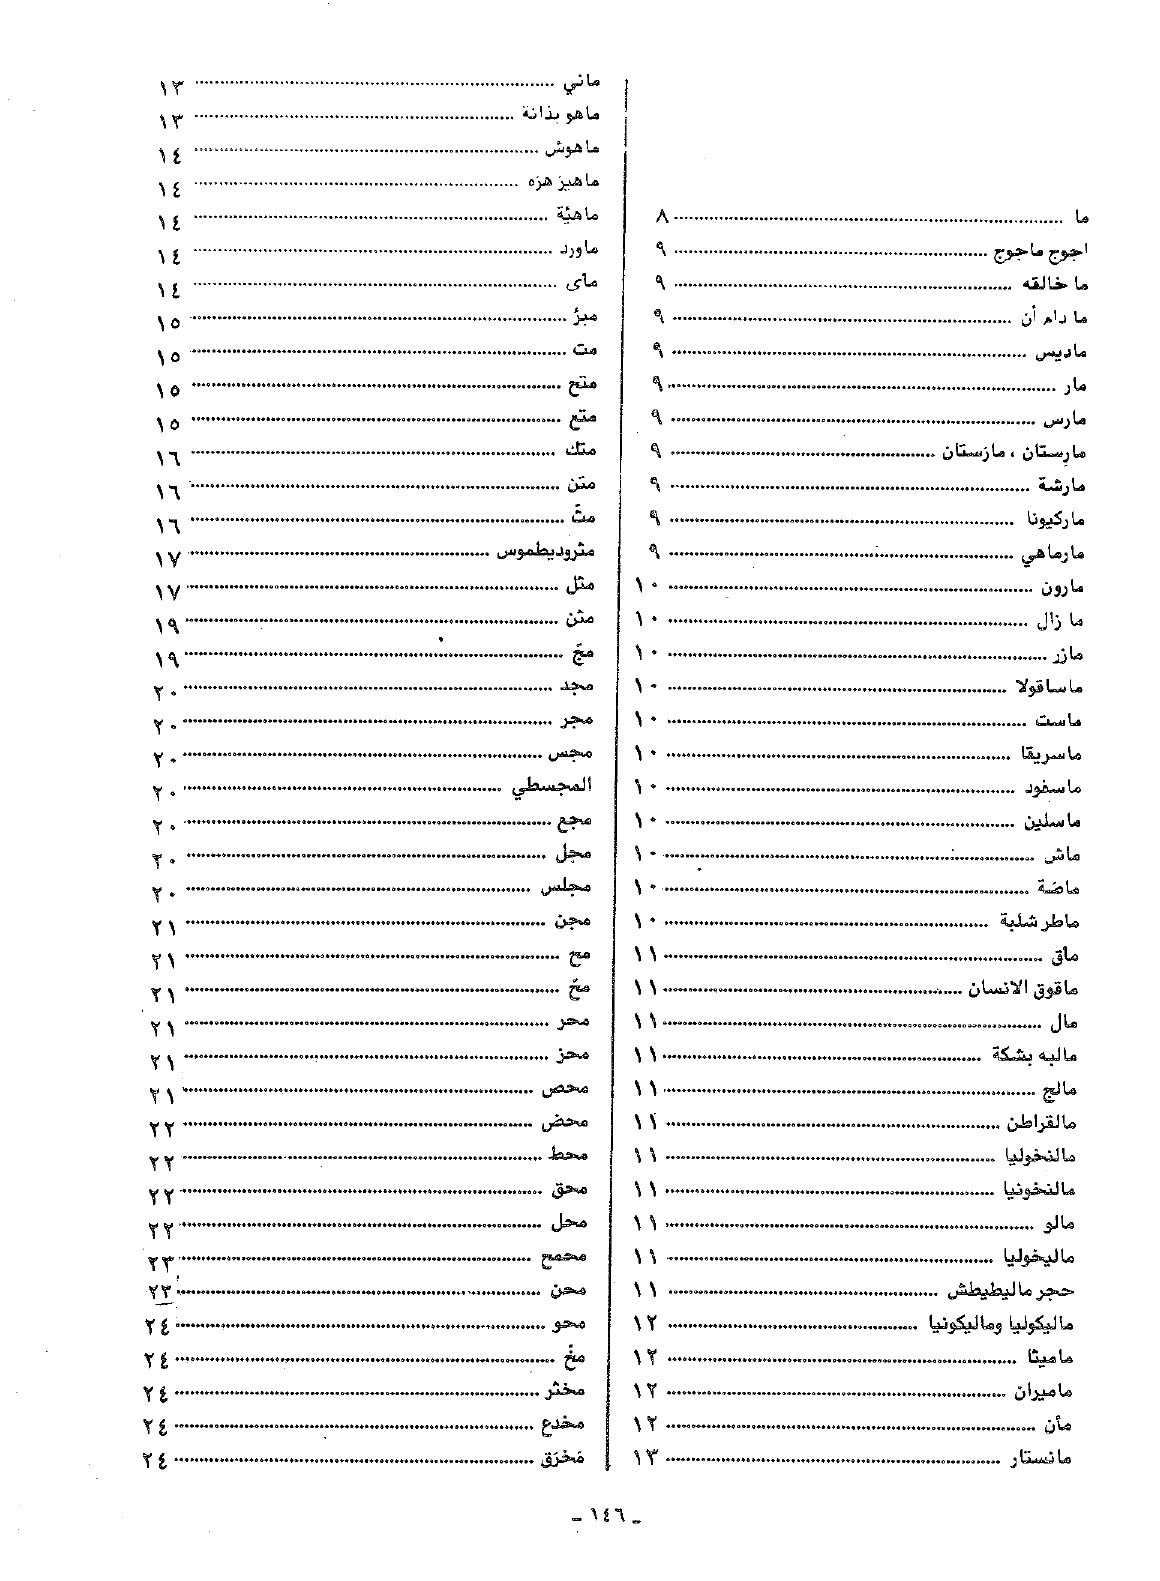 ما ........ ٨
اجوج ماجوج ........ ٩
ما خالقه ........ ٩
ما دام أن ........ ٩
ماديس ........ ٩
مار ........ ٩
مارس ........ ٩
مارستان ، مازستان ........ ٩
مارشة ........ ٩
ماركيونا ........ ٩
مارماهي ........ ٩
مارون ........ ١٠
ما زال ........ ١٠
مازر ........ ١٠
ماساقولا ........ ١٠
ماست ........ ١٠
ماسريقا ........ ١٠
ماسفود ........ ١٠
ماسلين ........ ١٠
ماش ........ ١٠
ماضة ........ ١٠
ماطر شلبة ........ ١٠
ماق ........ ١١
ماقوق الانسان ........ ١١
مال ........ ١١
مالبه بشكة ........ ١١
مالج ........ ١١
مالقراطن ........ ١١
مالنخوليا ........ ١١
مالنخونيا ........ ١١
مالو ........ ١١
ماليخوليا ........ ١١
حجر ماليطيطش ........ ١١
ماليكوليا وماليكونيا ........ ١٢
ماميثا ........ ١٢
ماميران ........ ١٢
مأن ........ ١٢
مانستار ........ ١٣
ماني ........ ١٣
ماهو بذانة ........ ١٣
ماهوش ........ ١٤
ماهيز هزه ........ ١٤
ماهيّة ........ ١٤
ماورد ........ ١٤
ماى ........ ١٤
ميز ........ ١٥
مت ........ ١٥
متح ........ ١٥
متع ........ ١٥
متك ........ ١٦
متن ........ ١٦
مثّ ........ ١٦
مثروديطموس ........ ١٧
مثل ........ ١٧
مثن ........ ١٩
مجّ ........ ١٩
مجد ........ ٢٠
مجر ........ ٢٠
مجس ........ ٢٠
المجسطي ........ ٢٠
مجع ........ ٢٠
مجل ........ ٢٠
مجلس ........ ٢٠
مجن ........ ٢١
مح ........ ٢١
محّ ........ ٢١
محر ........ ٢١
محز ........ ٢١
محص ........ ٢١
محض ........ ٢٢
محط ........ ٢٢
محق ........ ٢٢
محل ........ ٢٢
محمح ........ ٢٣
محن ........ ٢٣
محو ........ ٢٤
مخّ ........ ٢٤
مختر ........ ٢٤
مخدع ........ ٢٤
مَخرَق ........ ٢٤
ـ ١٤٦ ـ